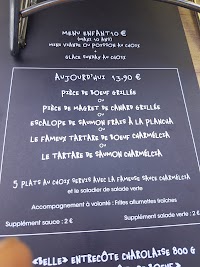 MENU ENFANT 10 €
(MAXI 10 ANS)
MINI VIANDE OU POISSON AU CHOIX
+
GLACE SUNDAY AU CHOIX
AUJOURD'HUI 13.90 €
PIÈCE DE BOEUF GRILLÉE
OU
PIÈCE DE MAGRET DE CANARD GRILLÉE
OU
ESCALOPE DE SAUMON FRAIS À LA PLANCHA
OU
LE FAMEUX TARTARE DE BOEUF CHARMÉLCIA
OU
LE TARTARE DE SAUMON CHARMÉLCIA
5 PLATS AU CHOIX SERVIS AVEC LA FAMEUSE SAUCE CHARMÉLCIA
et la salade de salade verte
Accompagnement à volonté : Frites allumettes fraîches
Supplément sauce : 2 € Supplément salade verte : 2 €
«BELLE» ENTRECÔTE CHAROLAISE 800 G